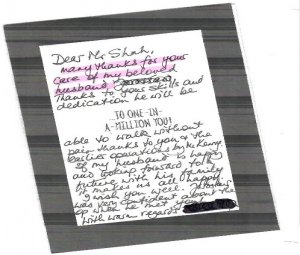 Dear Mr Shah,
many thanks for your
care of my beloved
husband
Thanks to your skills and
dedication he will be
TO ONE-IN-
A-MILLION YOU!
able to walk without
pain thanks to you & the
earlier operations by Mr
of my husband is happy
and looking forward to
future with his family
It makes us all happy
I wish you well.
was very confident about the
op when he met you!
with warm regards